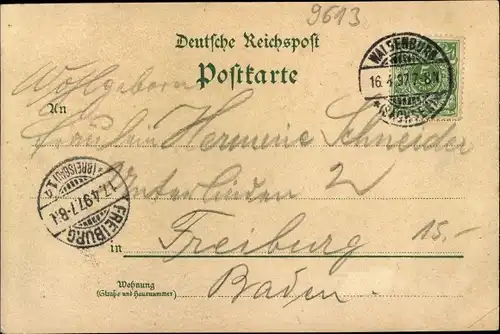 9613
Deutsche Reichspost
Postkarte
WALDENBURG
16.4.97.7-8.N
*(SACHSEN)*
Wohlgeboren
An Fräulein Hermine Schneider
Unterlinden 2
in Freiburg
15.-
Baden.
Wohnung
(Straße und Hausnummer)
FREIBURG
17.4.97.7-8.N
*(BREISGAU)1